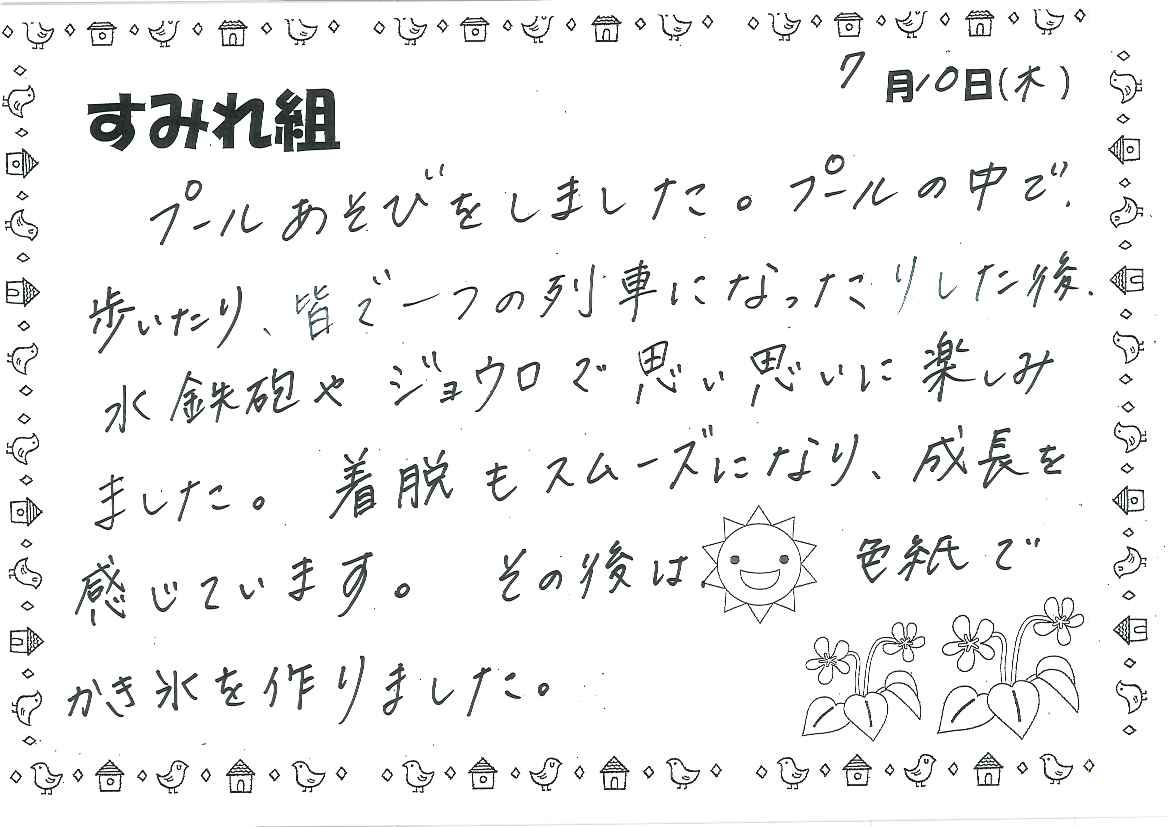 7月10日(木)
すみれ組
プールあそびをしました。プールの中で、
歩いたり、皆で一つの列車になったりした後、
水鉄砲やジョウロで思い思いに楽しみ
ました。着脱もスムーズになり、成長を
感じています。その後は、色紙で
かき氷を作りました。